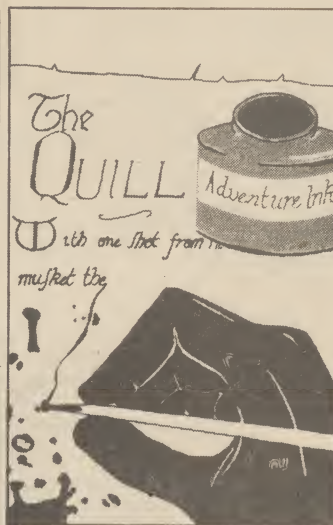 The
QUILL
Adventure Ink
With one shot from h
musket the